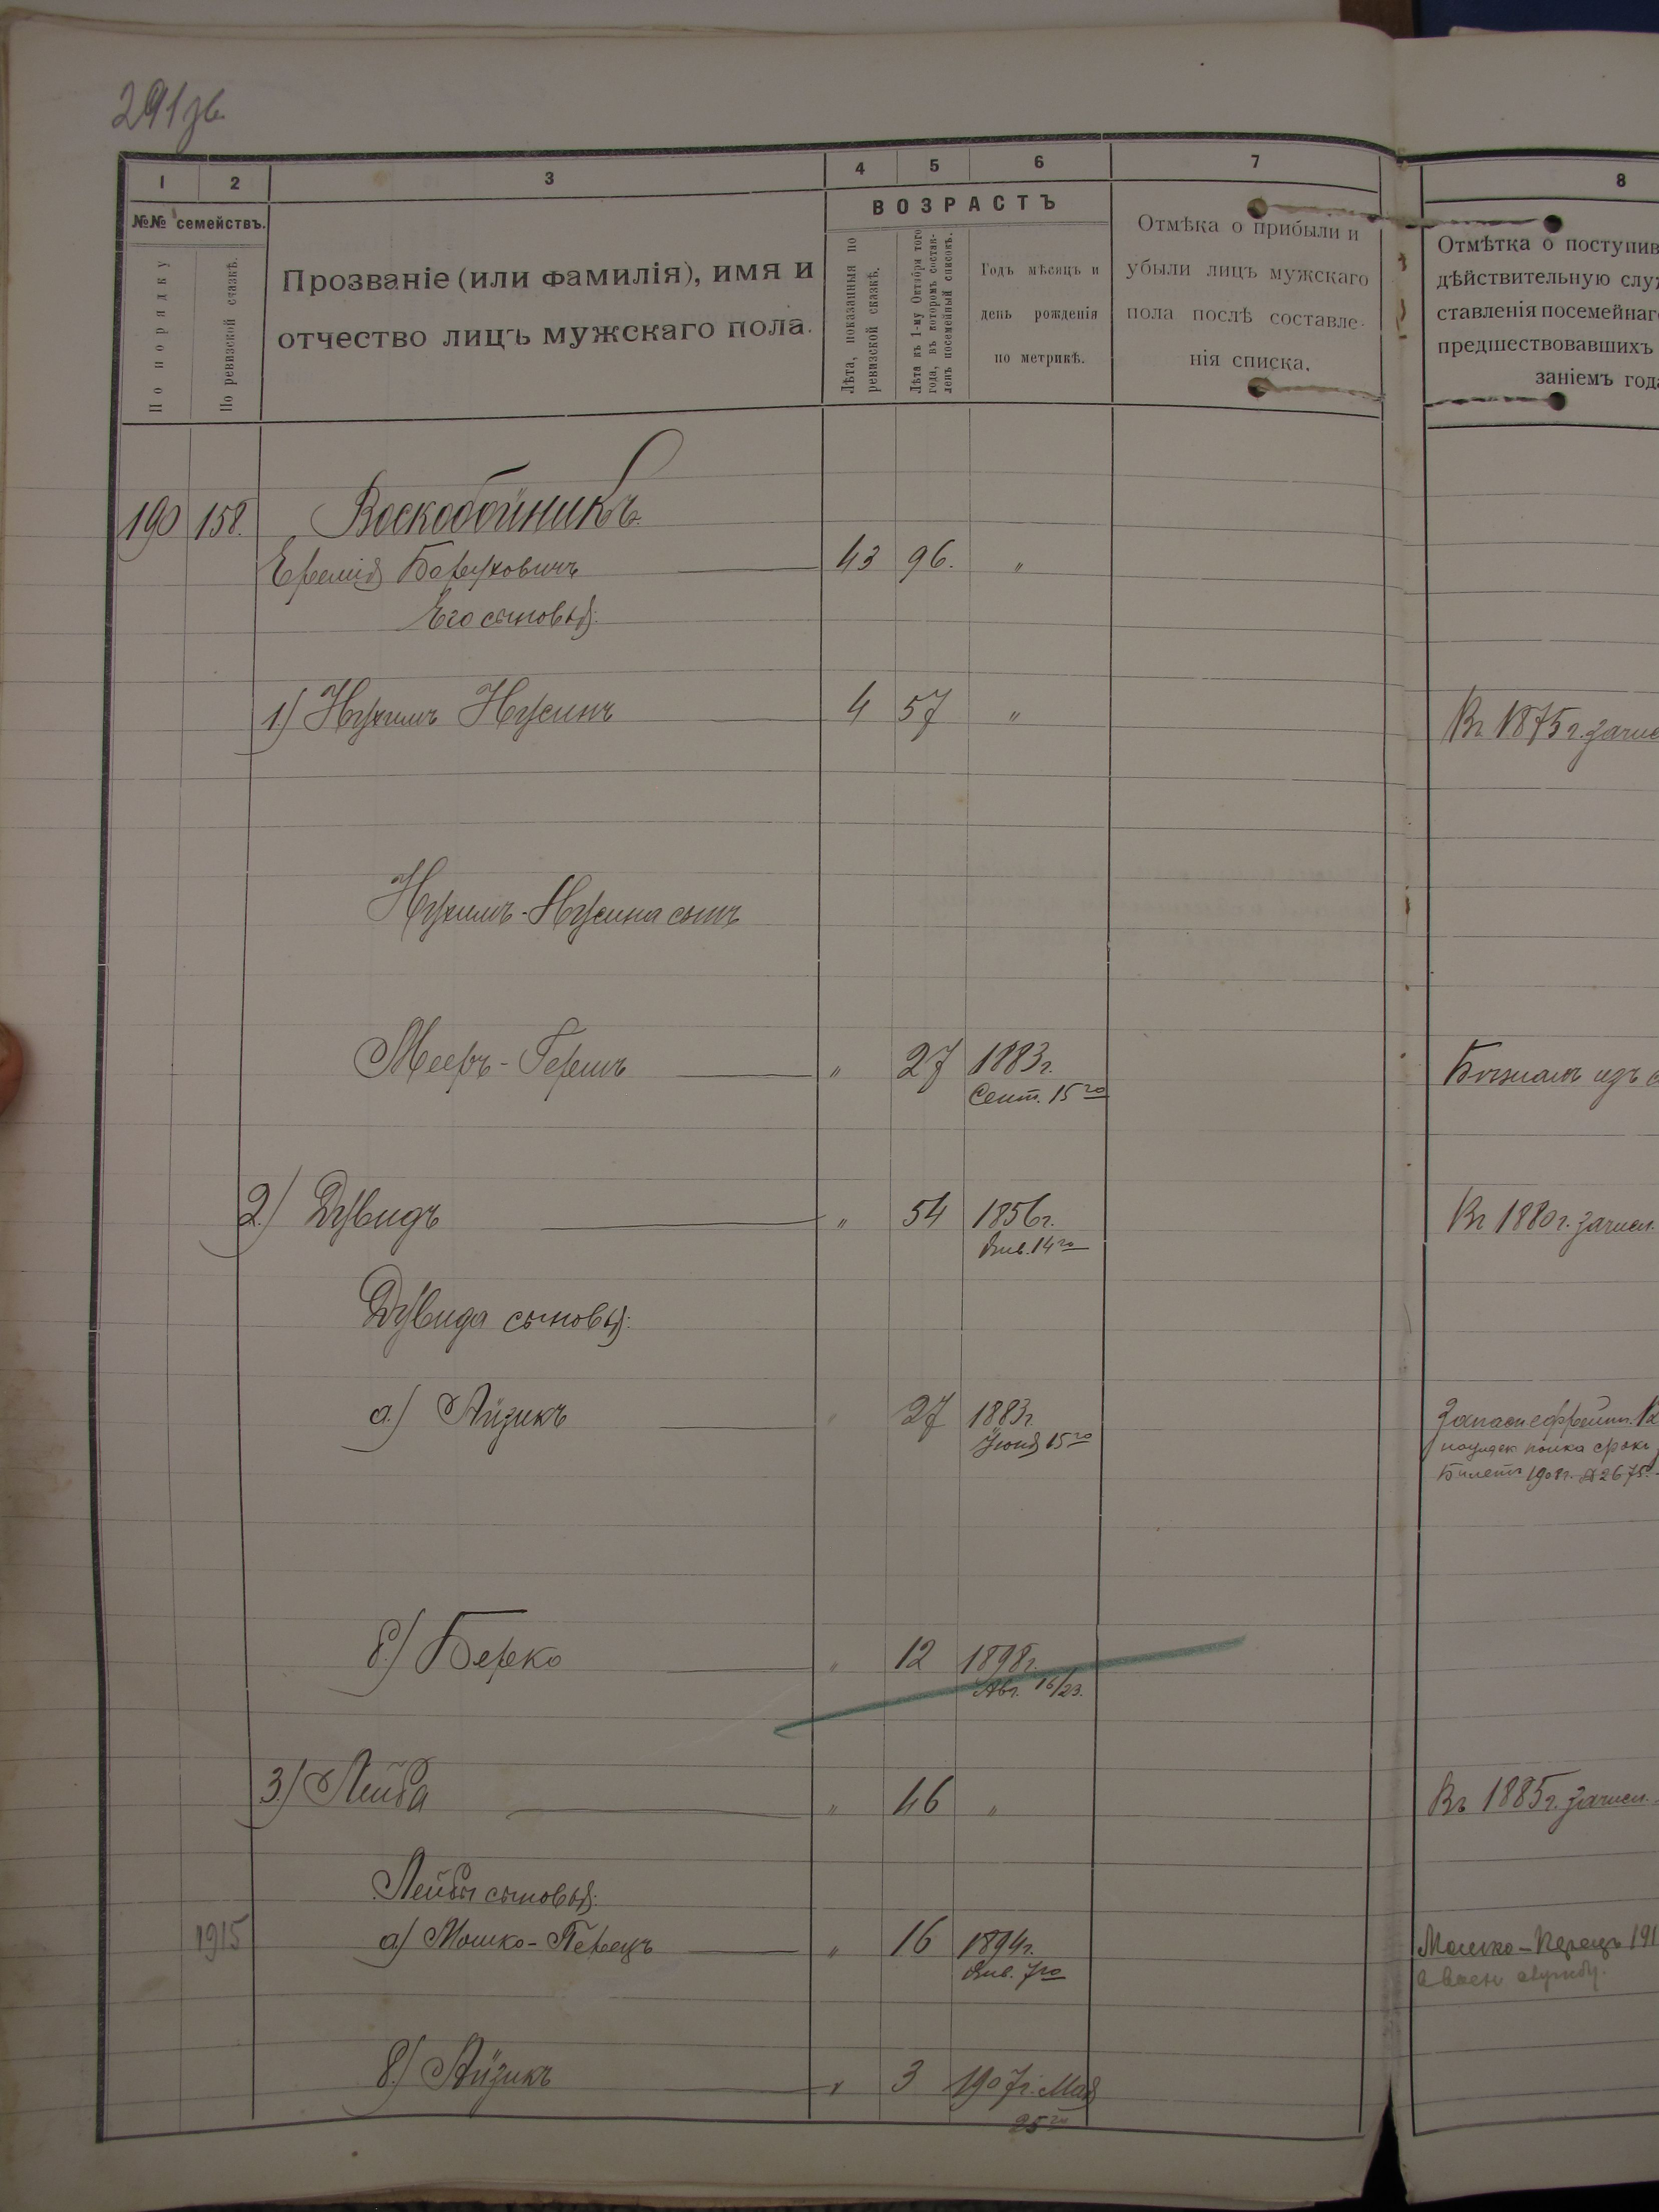 291 зв.
1 2 3 4 5 6 7 8
№№ семействъ.
По порядку
По ревизской сказкѣ.
Прозваніе (или фамилія), имя и
отчество лицъ мужскаго пола.
ВОЗРАСТЪ
Лѣта, показанныя по
ревизской сказкѣ.
Лѣта къ 1-му Октября того
года, въ которомъ состав-
ленъ посемейный списокъ.
Годъ мѣсяцъ и
день рожденія
по метрикѣ.
Отмѣка о прибыли и
убыли лицъ мужскаго
пола послѣ составле-
нія списка.
Отмѣтка о поступив
дѣйствительную слу
ставленія посемейнаг
предшествовавшихъ
заніемъ года
190 158. Воскобойникъ.
Еремія Боруховичъ 43 96. "
Его сыновья:
1) Нухимъ Нусинъ 4 57 " Въ 1875 г. зачис
Нухимъ-Нусина сынъ
Мееръ-Гершъ " 27 1883г.
Сент. 15го
изъ
2) Дувидъ " 54 1856г. Въ 1880г. зачисл.
Янв. 14го
Дувида сыновья:
а) Айзикъ " 27 1883г.
Іюня 15го
полка срокъ
Билетъ 1908г. №2675.
б) Берко " 12 1898г.
Авг. 16/23.
3) Лейба " 46 " Въ 1885г. зачисл.
Лейбы сыновья:
1915 а) Мошко-Перецъ " 16 1894г. Мошко-Перецъ 191
Янв. 7го
службу.
б) Айзикъ " 3 1907г. Мая
25го